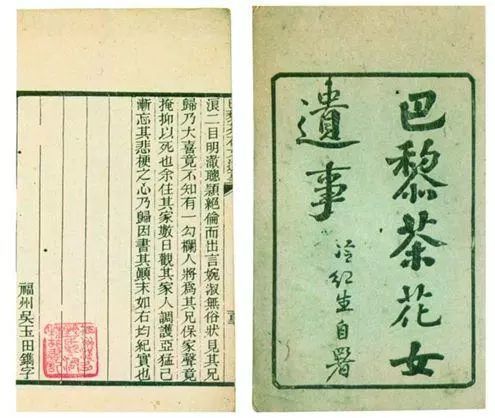 巴黎茶花女
遺事
冷紅生自署
浪二目明澈聰穎絕倫而出言婉淑無俗狀見其兄
歸乃大喜竟不知有一勾欄人將為其兄保家聲竟
掩抑以死也余住其家數日觀其家人調護亞猛己
漸忘其悲梗之心乃歸因書其顛末如右均紀實也
福州吳玉田鐫字